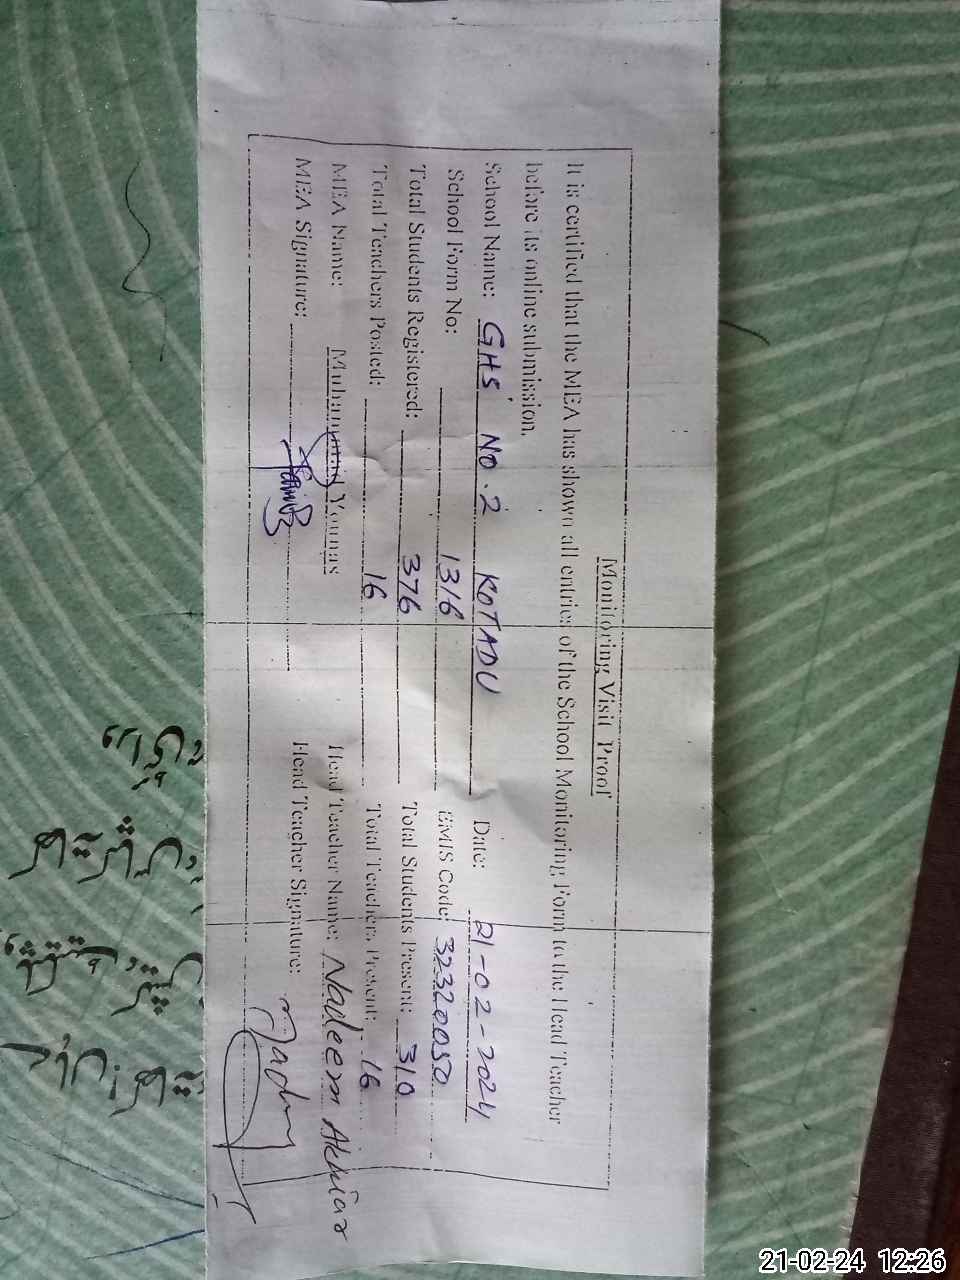 Monitoring Visit Proof
It is certified that the MEA has shown all entries of the School Monitoring Form to the Head Teacher
before its online submission.
School Name: GHS NO. 2 KOTADU Date: 21-02-2024
School Form No: 1316 EMIS Code: 32320050
Total Students Registered: 376 Total Students Present: 310
Total Teachers Posted: 16 Total Teachers Present: 16
MEA Name: Muhammad Younas Head Teacher Name: Nadeem Akhtar
MEA Signature: Head Teacher Signature:
21-02-24 12:26